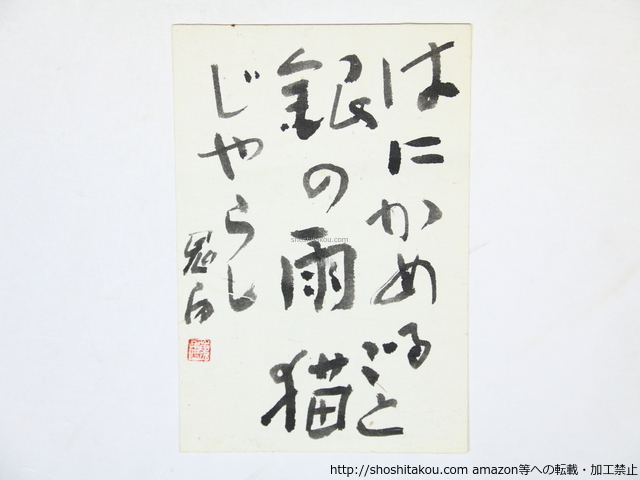 はにかめるごと
銀の雨猫
じやらし
shoshitakou.com
http://shoshitakou.com amazon等への転載・加工禁止